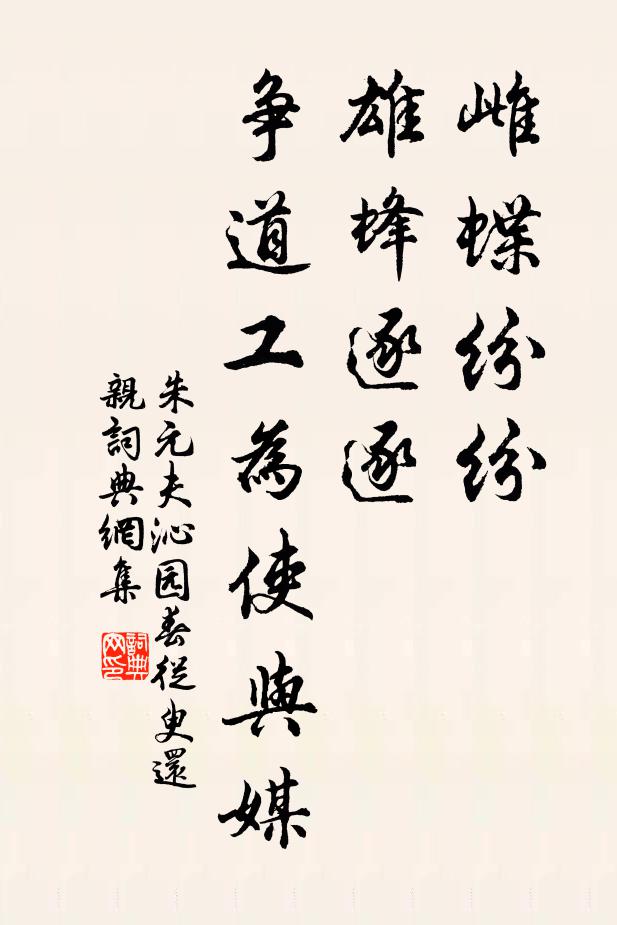 雌蝶纷纷
雄蜂逐逐
争道工為使與媒
朱元夫沁园春從叟還
親詞典網集
詞典网印